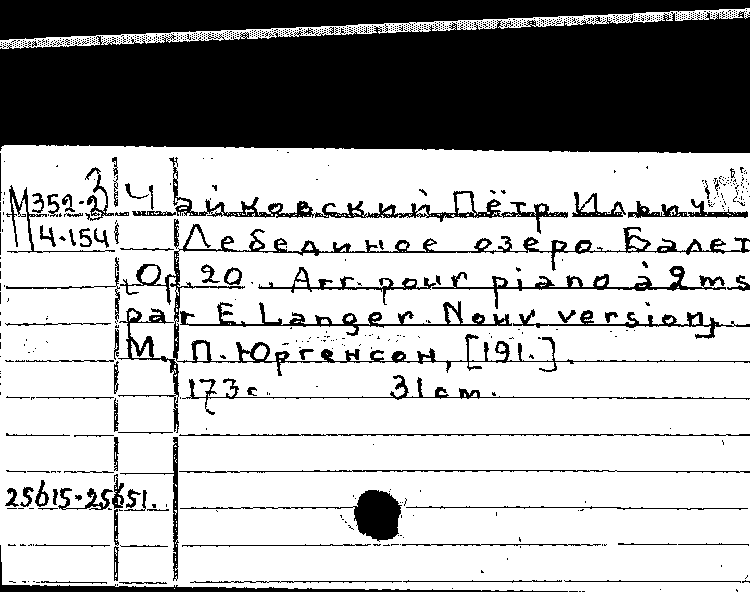 М352-2 3 Чайковский, Пётр Ильич
4-154 Лебединое озеро. Балет
Op. 20. Arr. pour piano à 2 ms
par E. Langer. Nouv. version].
М., П. Юргенсон, [191.].
173 с. 31 cm.
25615-25651.